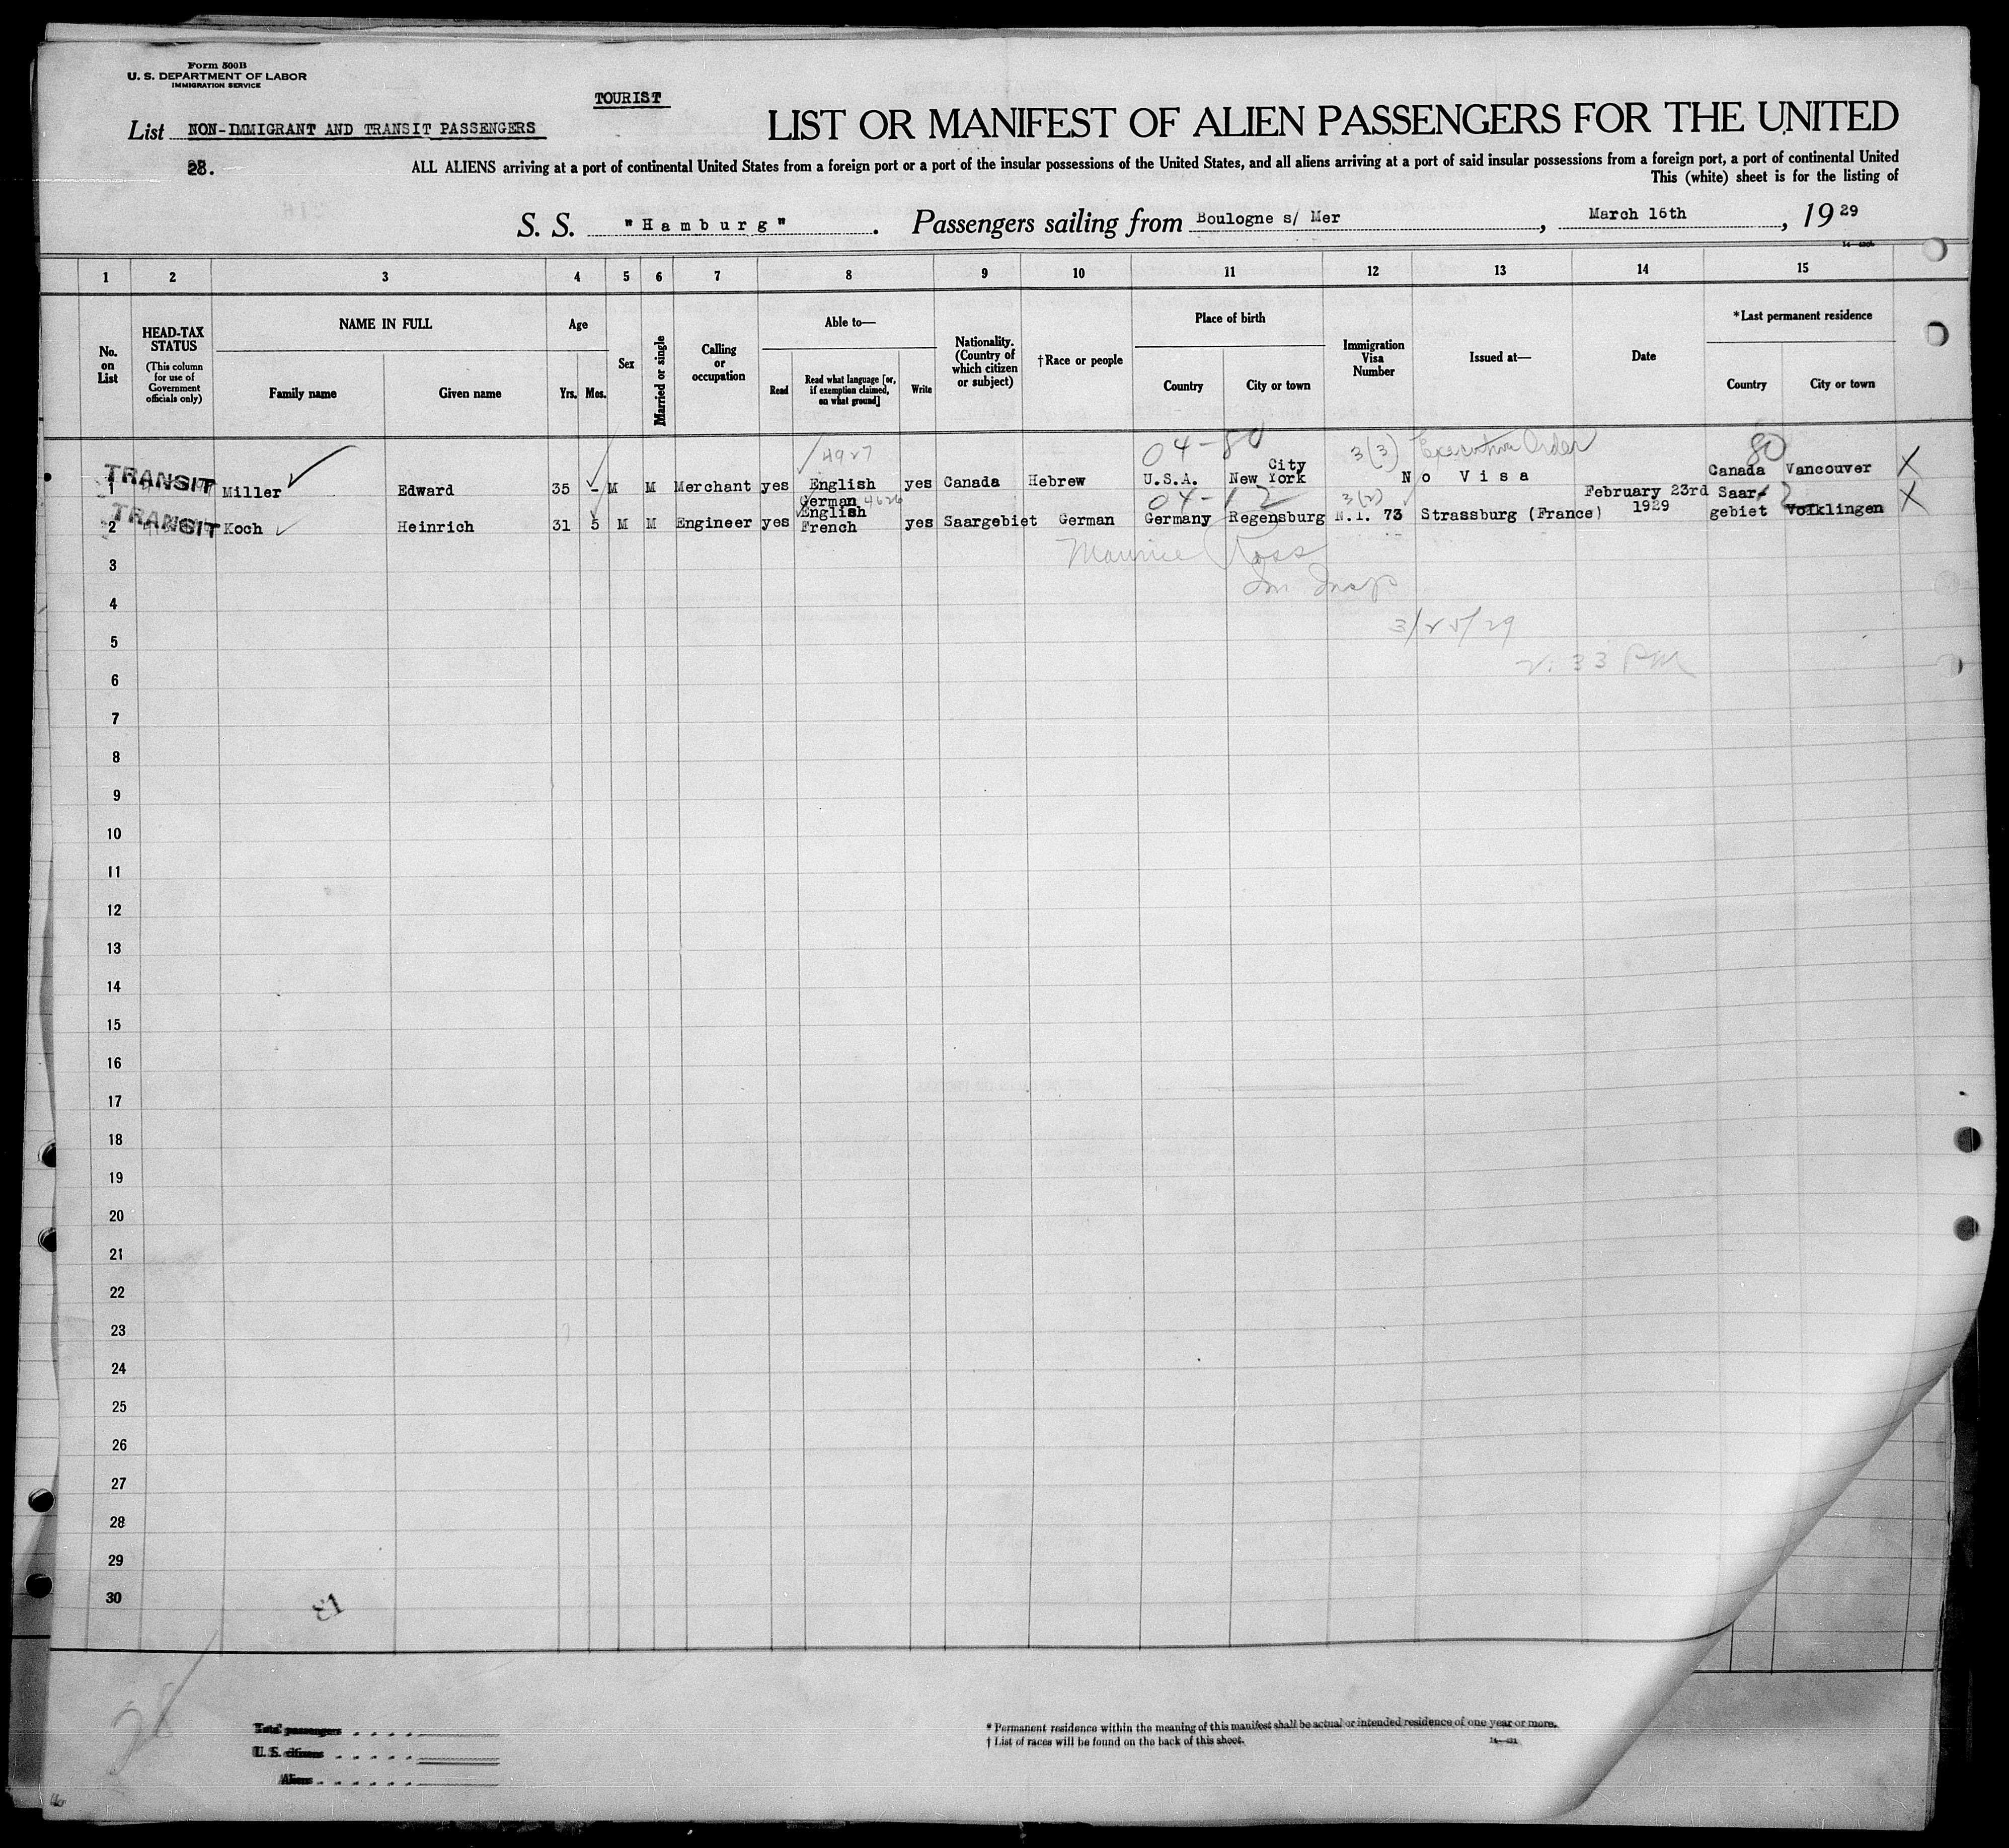 Form 500B
U. S. DEPARTMENT OF LABOR
IMMIGRATION SERVICE
TOURIST
List NON-IMMIGRANT AND TRANSIT PASSENGERS
28.
LIST OR MANIFEST OF ALIEN PASSENGERS FOR THE UNITED
ALL ALIENS arriving at a port of continental United States from a foreign port or a port of the insular possessions of the United States, and all aliens arriving at a port of said insular possessions from a foreign port, a port of continental United
This (white) sheet is for the listing of
S. S. "Hamburg". Passengers sailing from Boulogne s/ Mer, March 16th, 1929
1 2 3 4 5 6 7 8 9 10 11 12 13 14 15
No. on List
HEAD-TAX STATUS
(This column for use of Government officials only)
NAME IN FULL
Family name
Given name
Age
Yrs. Mos.
Sex
Married or single
Calling or occupation
Able to—
Read
Read what language [or, if exemption claimed, on what ground]
Write
Nationality. (Country of which citizen or subject)
†Race or people
Place of birth
Country
City or town
Immigration Visa Number
Issued at—
Date
*Last permanent residence
Country
City or town
4927 04-80 3(3) Executive Order 80
1 TRANSIT Miller Edward 35 - M M Merchant yes English yes Canada Hebrew U.S.A. New York City No Visa Canada Vancouver X
4626 04-12 3(2) 12
2 TRANSIT Koch Heinrich 31 5 M M Engineer yes German English French yes Saargebiet German Germany Regensburg N.I. 73 Strassburg (France) February 23rd 1929 Saar-gebiet Volklingen X
Maurice Ross
Im Insp
3/25/29
2:33 PM
3
4
5
6
7
8
9
10
11
12
13
14
15
16
17
18
19
20
21
22
23
24
25
26
27
28
29
30
28
Total passengers
U. S. citizens
Aliens
* Permanent residence within the meaning of this manifest shall be actual or intended residence of one year or more.
† List of races will be found on the back of this sheet.